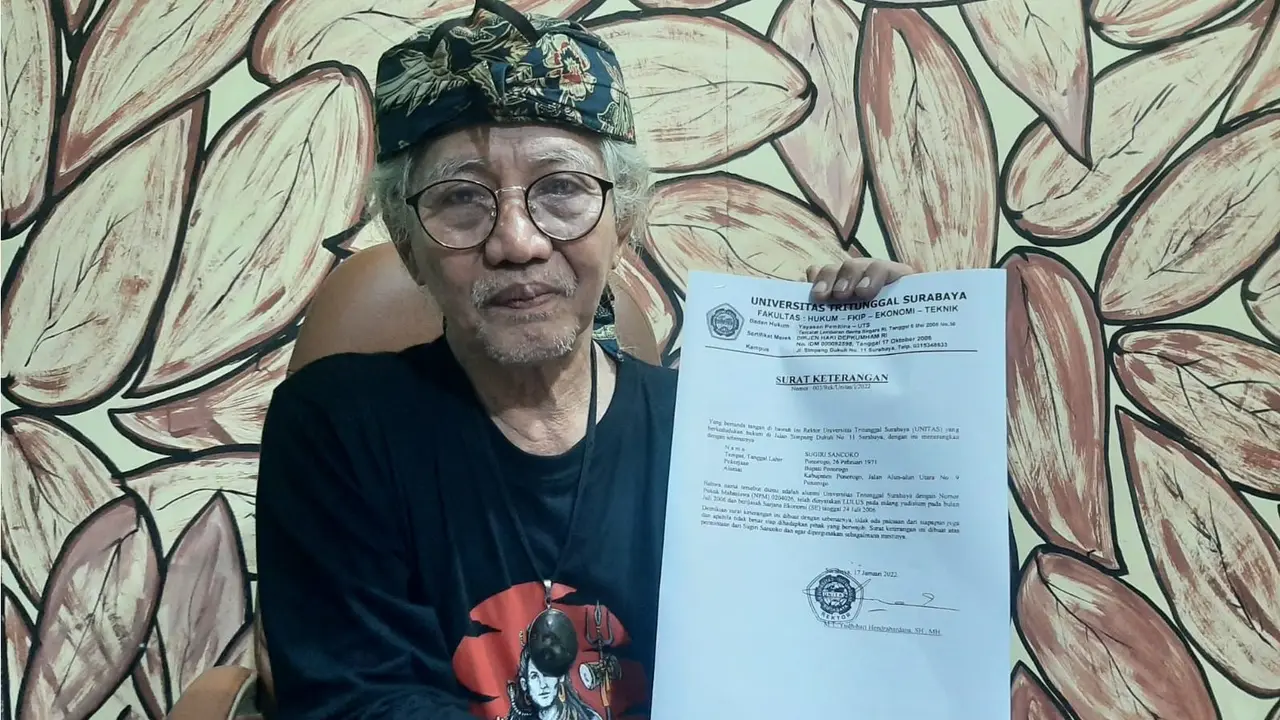 UNIVERSITAS TRITUNGGAL SURABAYA
FAKULTAS : HUKUM – FKIP – EKONOMI – TEKNIK
Badan Hukum : Yayasan Pembina – UTS
Tercatat Lembaran Berita Negara RI, Tanggal 6 Mei 2008 No.
Sertifikat Merek : DIRJEN HAKI DEPKUMHAM RI
No. IDM 000092898, Tanggal 17 Oktober 2006
Kampus : Jl. Simpang Dukuh No. 11 Surabaya, Telp.
SURAT KETERANGAN
Nomor : 003/Rek/Unitas/I/2022
Yang bertanda tangan di bawah ini Rektor Universitas Tritunggal Surabaya (UNITAS) yang
berkedudukan hukum di Jalan Simpang Dukuh No. 11 Surabaya, dengan ini menerangkan
dengan sebenarnya
N a m a : SUGIRI SANCOKO
Tempat, Tanggal Lahir : Ponorogo, 26 Pebruari 1971
Pekerjaan : Bupati Ponorogo
Alamat : Kabupaten Ponorogo, Jalan Alun-alun Utara No 9
Ponorogo
Bahwa nama tersebut diatas adalah alumni Universitas Tritunggal Surabaya dengan Nomor
Pokok Mahasiswa (NPM) telah dinyatakan LULUS pada sidang yudisium pada bulan
Juli 2006 dan berijasah Sarjana Ekonomi (SE) tanggal 24 Juli 2006.
Demikian surat keterangan ini dibuat dengan sebenarnya, tidak ada paksaan dari siapapun juga
dan apabila tidak benar siap dihadapkan pihak yang berwajib. Surat keterangan ini dibuat atas
permintaan dari Sugiri Sancoko dan agar dipergunakan sebagaimana mestinya.
Surabaya, 17 Januari 2022.
UNITA
REKTOR
SH., MH